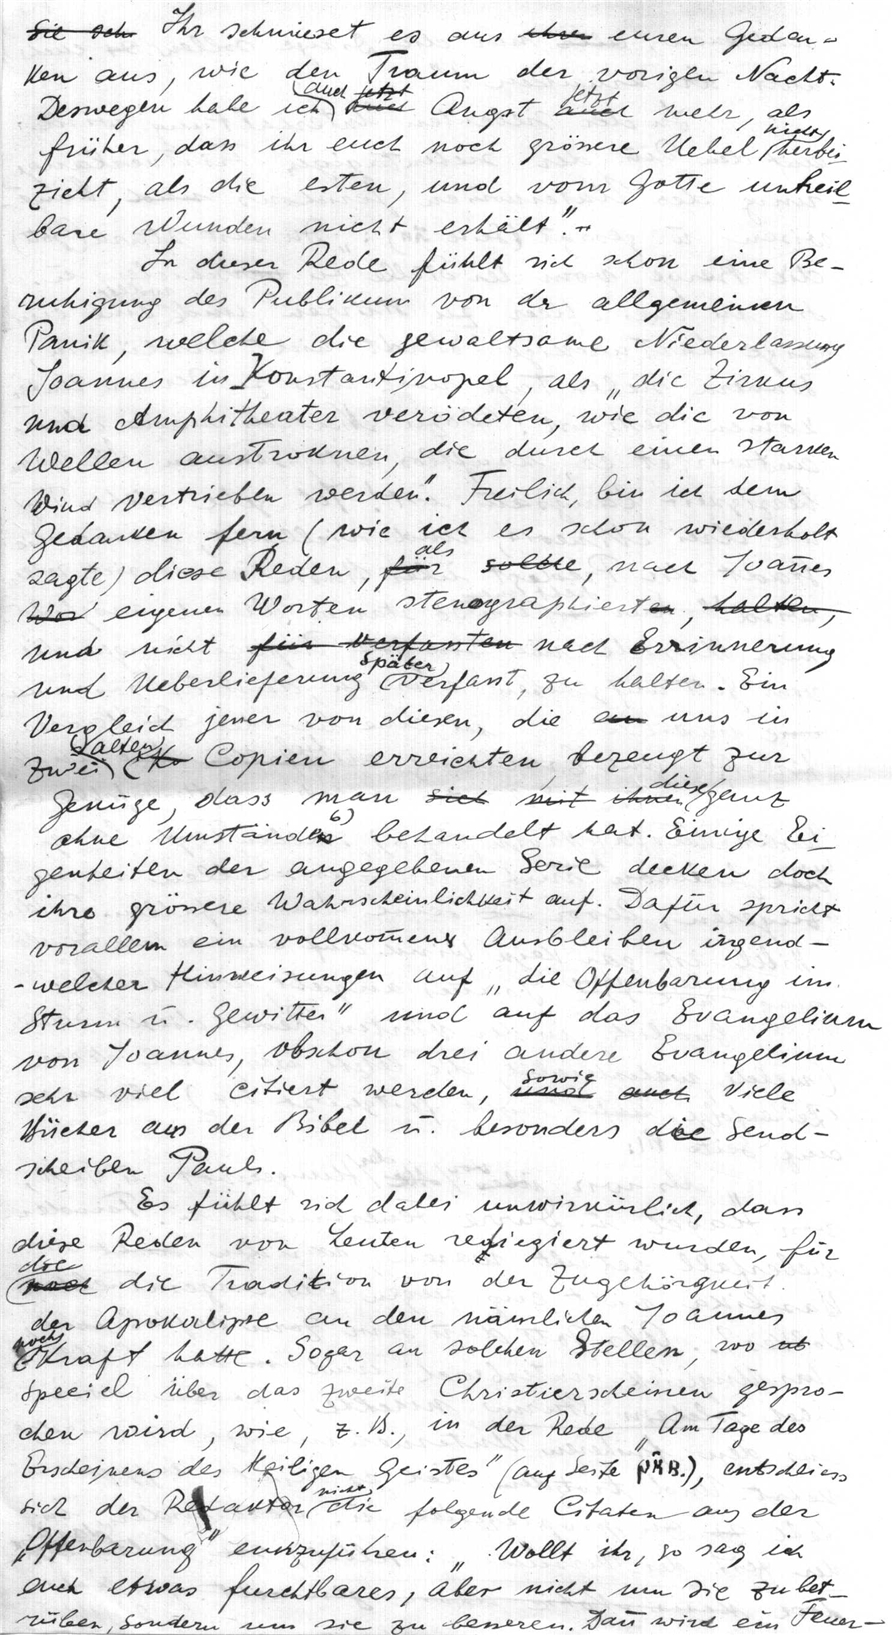 Ihr schmieset es aus euren Gedan-
ken aus, wie den Traum der vorigen Nacht.
Deswegen habe ich auch Angst jetzt mehr, als
früher, dass ihr euch noch grössere Uebel nicht herbei
zieht, als die esten, und vom Gotte unheil-
bare Wunden nicht erhält".
In dieser Rede fühlt sich schon eine Be-
ruhigung des Publikum von der allgemeinen
Panik, welche die gewaltsame Niederlassung
Joannes in Konstantinopel, als „die Zirkus
und Amphitheater verödeten, wie die von
Wellen austroknen, die durch einen starken
Wind vertrieben werden". Freilich, bin ich dem
Gedanken fern (wie ich es schon wiederholt
sagte) diese Reden, als, nach Joan̄es
eigenen Worten stenographiert,
und nicht nach Errinnerung
und Ueberlieferung später verfasst, zu halten. Ein
Vergleich jener von diesen, die uns in
zwei alten Copien erreichten, bezeugt zur
Genüge, dass man diese ganz
ohne Umstände 6) behandelt hat. Einige Ei-
genheiten der angegebenen Serie decken doch
ihre grössere Wahrscheinlichkeit auf. Dafür spricht
vorallem ein vollkom̄enes Ausbleiben irgend-
-welcher Hinweisungen auf „die Offenbarung im
Sturm u. Gewitter" und auf das Evangelium
von Joannes, obschon drei andere Evangelium
sehr viel citiert werden, sowie viele
Bücher aus der Bibel u. besonders die Send-
scheiben Pauls.
Es fühlt sich dabei unwirkürlich, dass
diese Reden von Leuten redigiert wurden, für
die die Tradition von der Zugehörgkeit
der Apokalipse an den nämlichen Joannes
noch Kraft hatte. Sogar an solchen Stellen, wo
speciel über das zweite Christierscheinen gespro-
chen wird, wie, z.B., in der Rede „Am Tage des
Erscheinens des Heiligen Geistes" (auf Seite), entschliess
sich der Redaktor nicht die folgende Citaten aus der
„Offenbarung" einzuführen: „Wollt ihr, so sag ich
euch etwas furchtbares, aber nicht um sie zu bet-
rüben, sondern um sie zu besseren. Dan̄ wird ein Feuer-